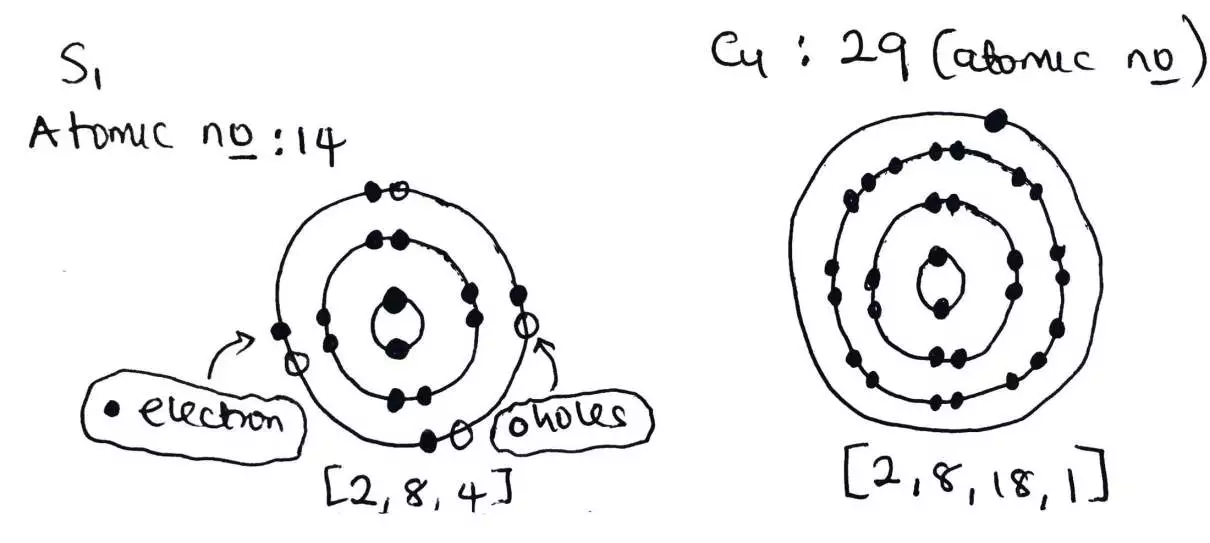 Si
Atomic no : 14
• electron
o holes
[2, 8, 4]
Cu : 29 (atomic no)
[2, 8, 18, 1]